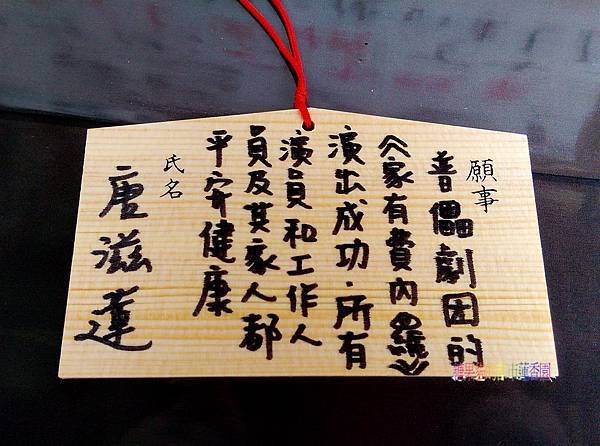 願事
儡劇団的
《家有費內羅》
演出成功．所有
演員和工作人
員及其家人都
平安健康
氏名
唐滋蓮